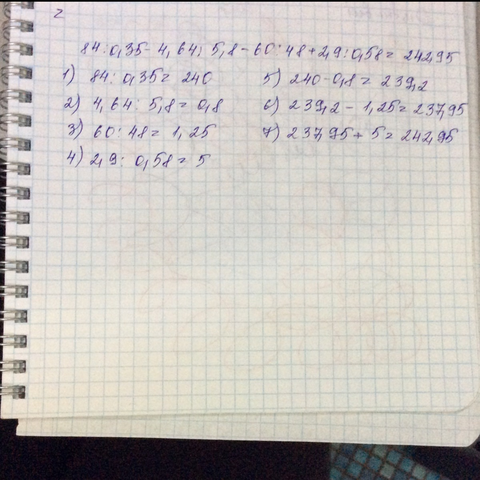 2
84:0,35-4,64:5,8-60:48+2,9:0,58=242,95
1) 84:0,35=240
2) 4,64:5,8=0,8
3) 60:48=1,25
4) 2,9:0,58=5
5) 240-0,8=239,2
6) 239,2-1,25=237,95
7) 237,95+5=242,95